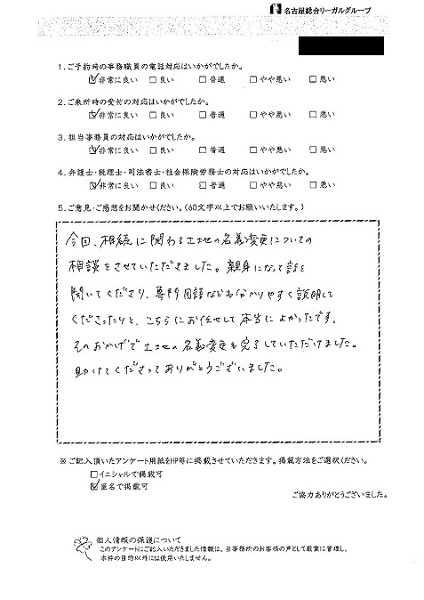 名古屋総合リーガルグループ
1. ご予約時の事務職員の電話対応はいかがでしたか。
☑非常に良い □良い □普通 □やや悪い □悪い
2. ご来所時の受付の対応はいかがでしたか。
☑非常に良い □良い □普通 □やや悪い □悪い
3. 担当事務員の対応はいかがでしたか。
☑非常に良い □良い □普通 □やや悪い □悪い
4. 弁護士・税理士・司法書士・社会保険労務士の対応はいかがでしたか。
☑非常に良い □良い □普通 □やや悪い □悪い
5. ご意見・ご感想をお聞かせください。(60文字以上でお願いいたします。)
今回、相続に関わる土地の名義変更についての
相談をさせていただきました。親身になって話を
聞いてくださり、専門用語などもわかりやすく説明して
くださったりと、こちらにお任せして本当によかったです。
そのおかげで土地の名義変更も完了していただけました。
助けてくださってありがとうございました。
※ご記入頂いたアンケート用紙をHP等に掲載させていただきます。掲載方法をご選択ください。
□イニシャルで掲載可
☑匿名で掲載可
ご協力ありがとうございました。
個人情報の保護について
このアンケートにご記入いただきました情報は、当事務所のお客様の声として厳重に管理し、
本件の目的以外には使用いたしません。